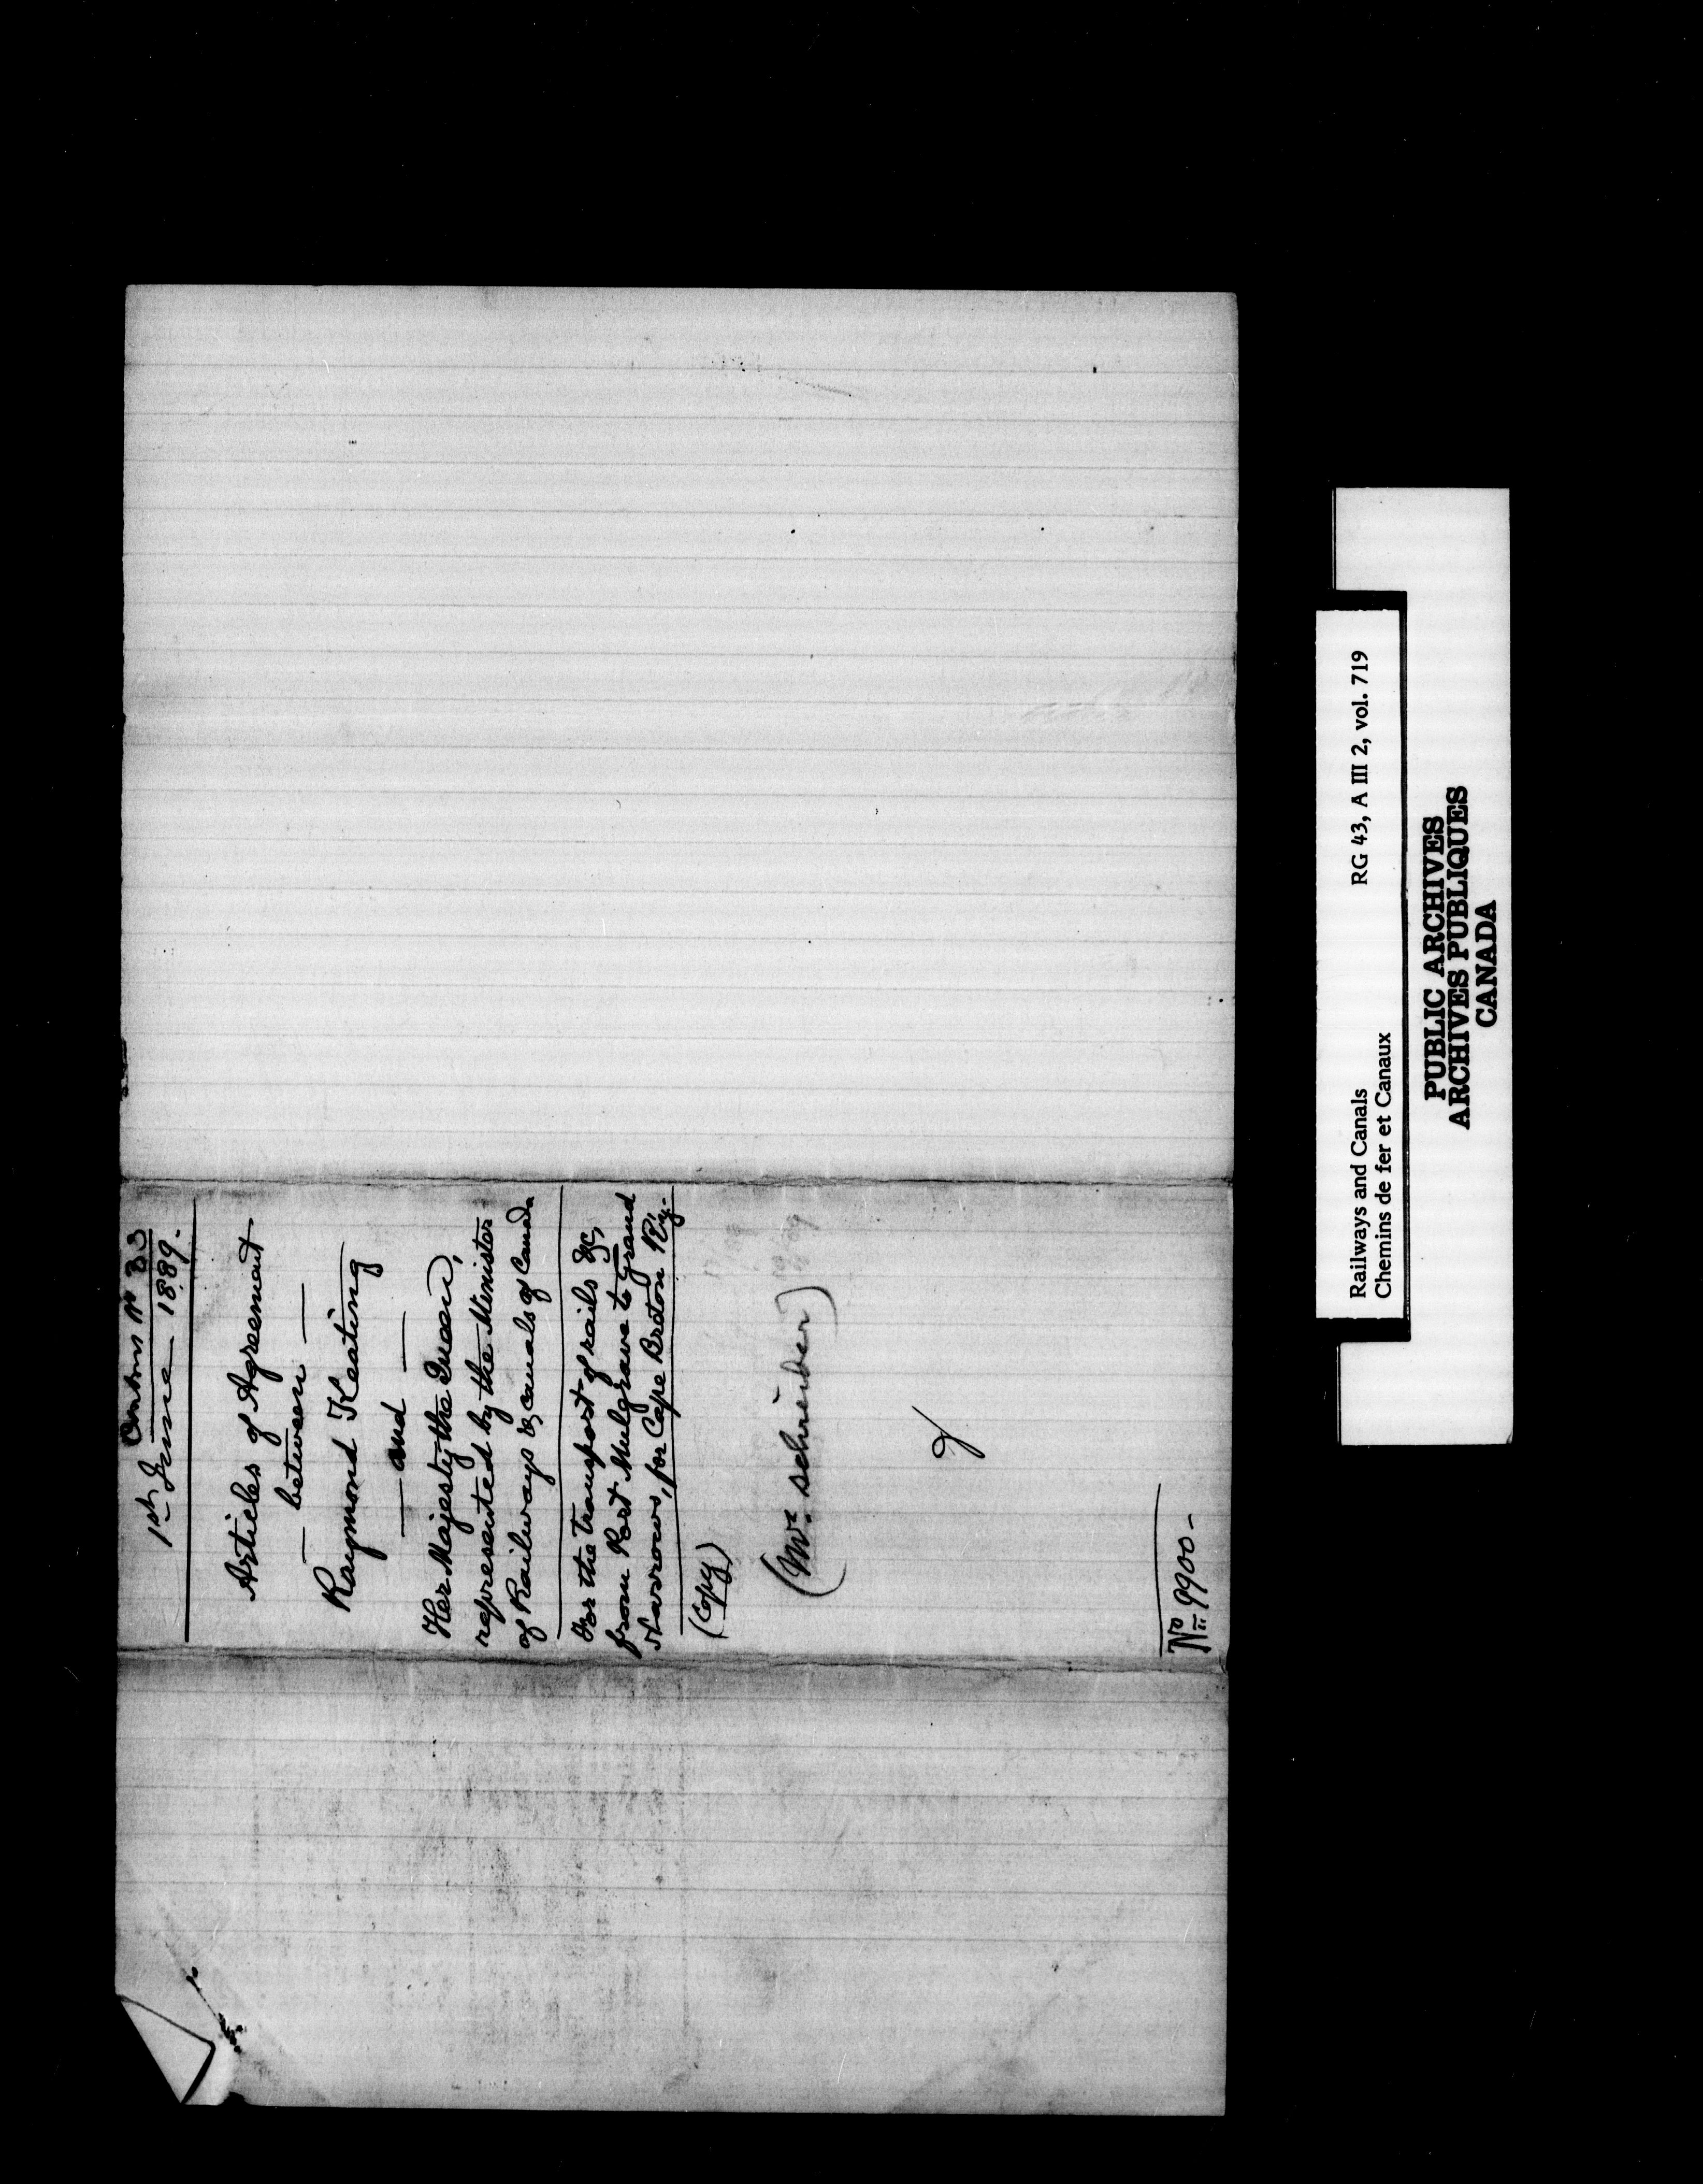 Contract No 33
1st June 1889.
Articles of Agreement
— between —
Raymond Keating
— and —
Her Majesty the Queen,
represented by the Minister
of Railways & Canals of Canada
For the transport of rails &c,
from Port Mulgrave to Grand
Narrows, for Cape Breton Ry.
(Copy)
(Mr. Schreiber)
No 9900 -
Railways and Canals RG 43, A III 2, vol. 719
Chemins de fer et Canaux
PUBLIC ARCHIVES
ARCHIVES PUBLIQUES
CANADA